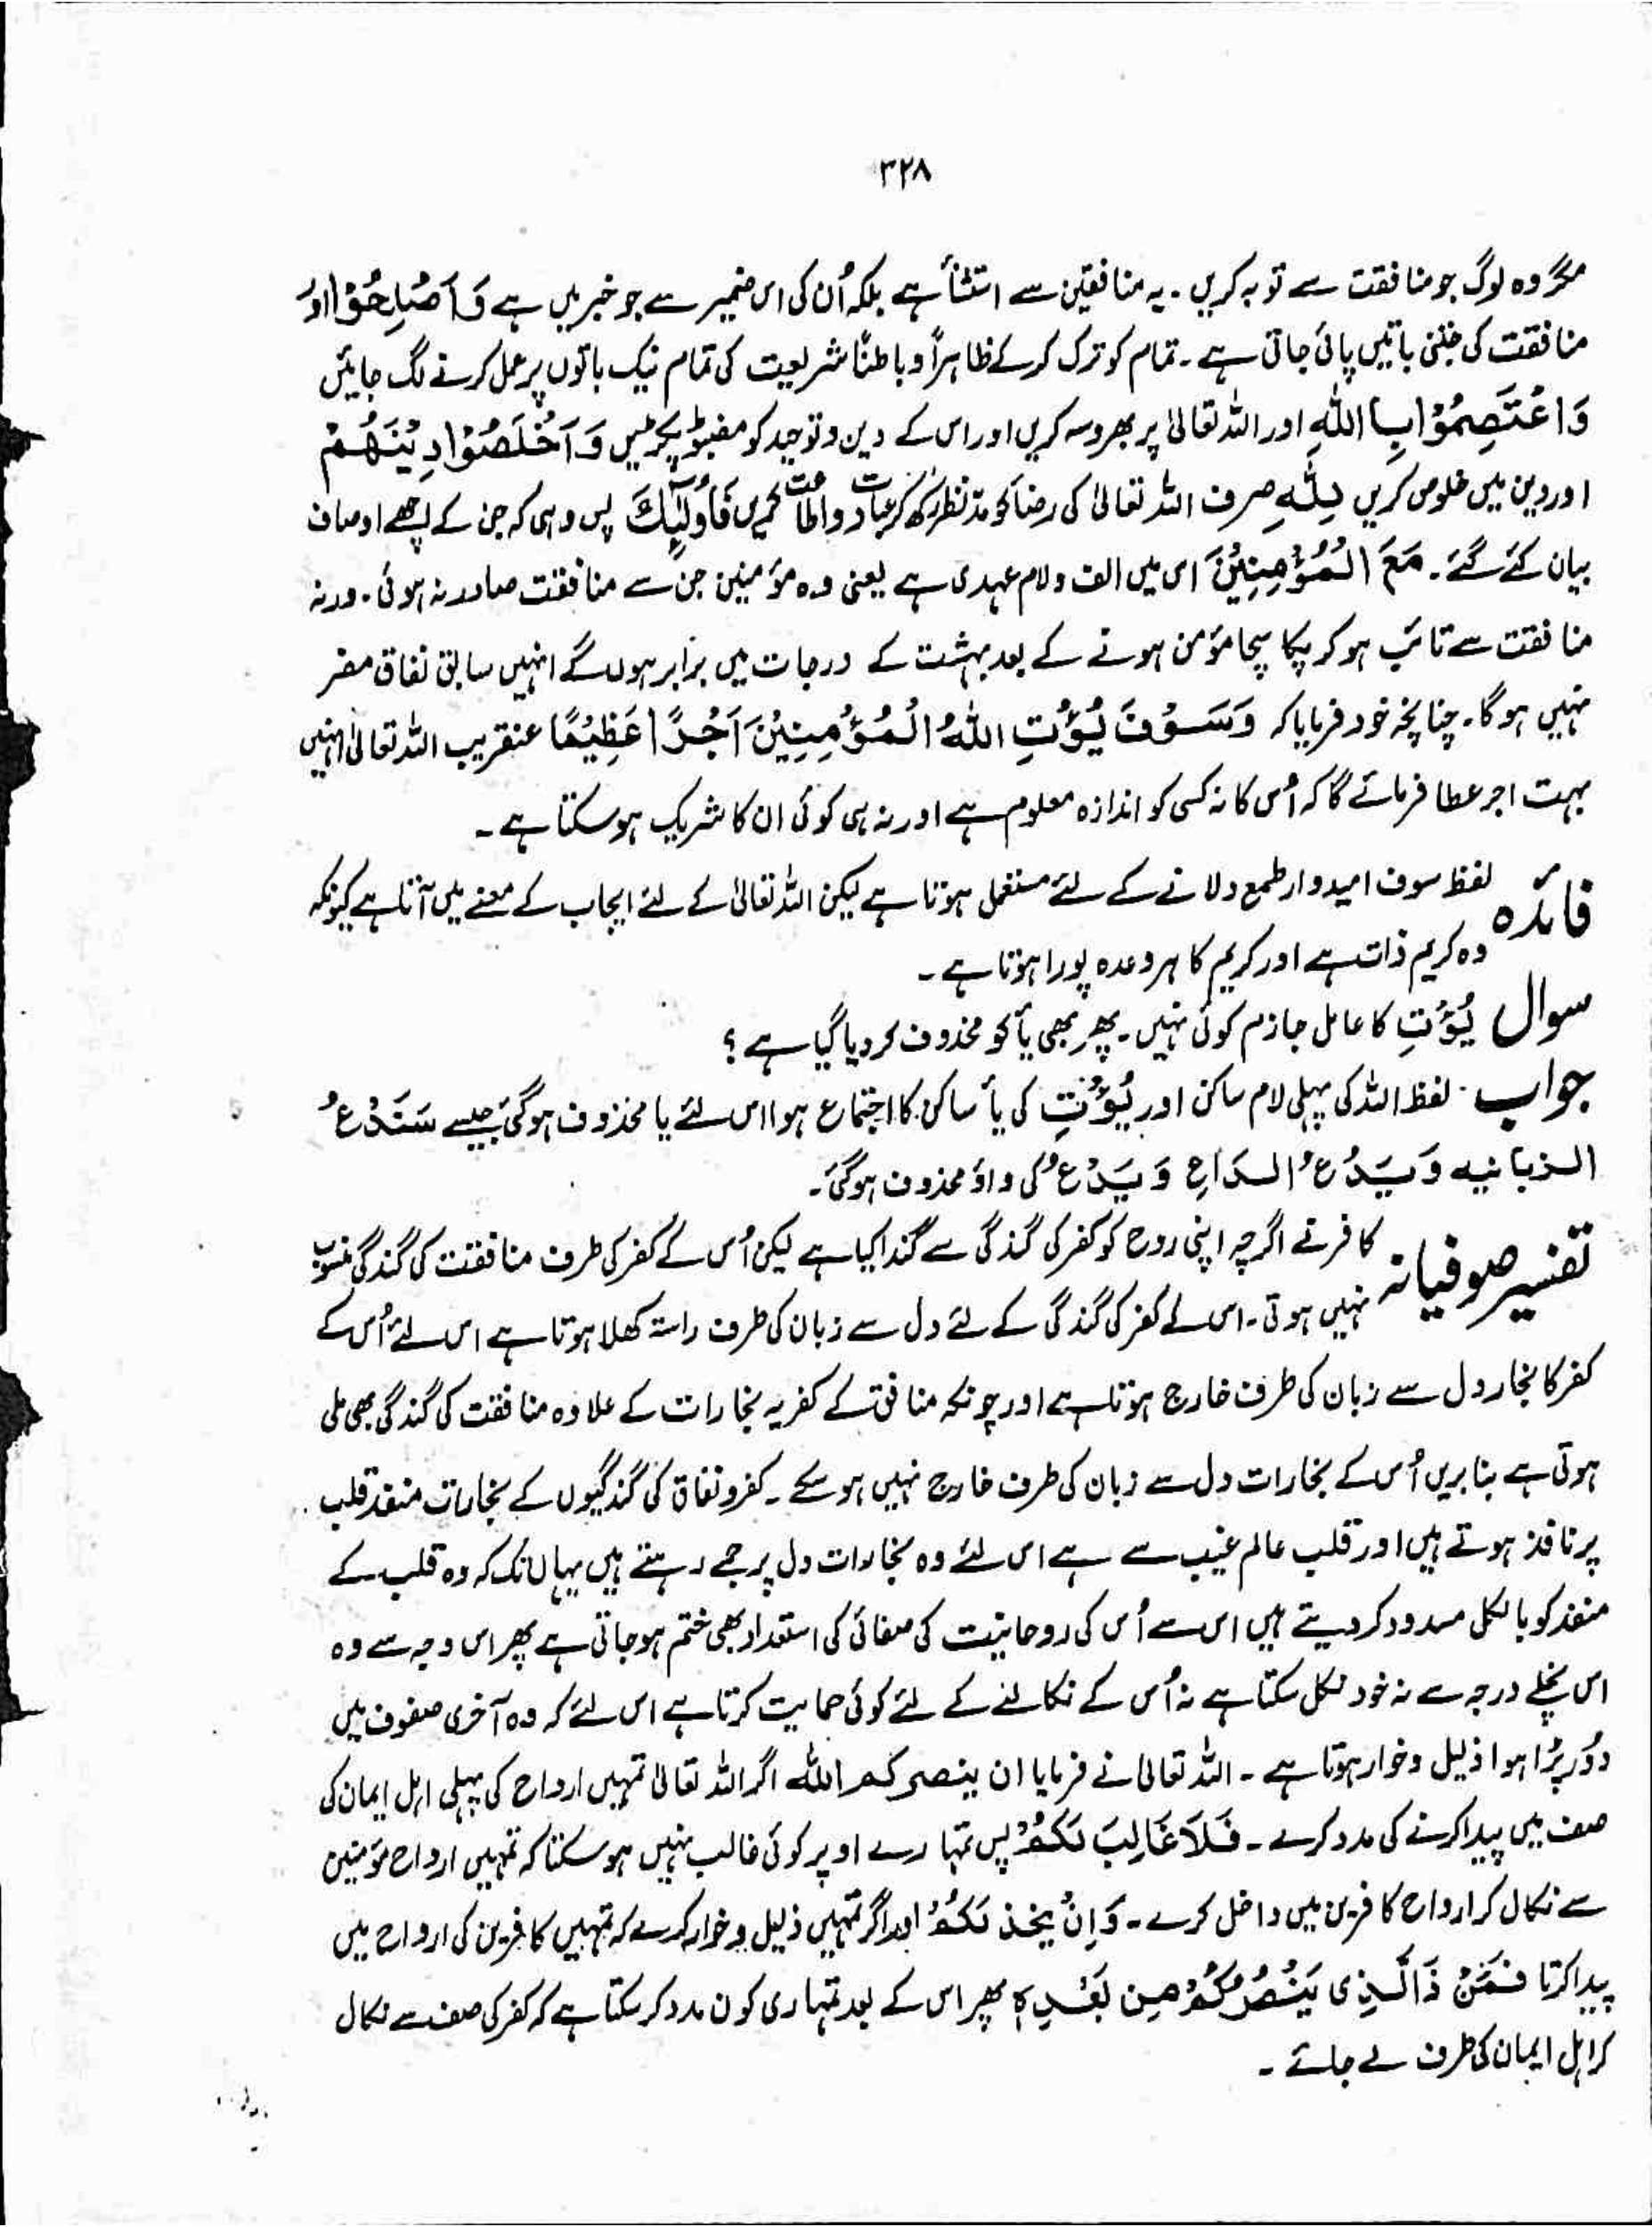 ۳۲۸
مگر وہ لوگ جو منافقت سے توبہ کریں ۔ یہ منافقین سے استثنأ ہے بلکہ اُن کی اس ضمیر سے جو خبر میں ہے وَ اَصْلِحُوْا اور
منافقت کی جتنی باتیں پائی جاتی ہے ۔ تمام کو ترک کر کے ظاہراً و باطناً شریعت کی تمام نیک باتوں پر عمل کرنے لگ جائیں
وَاعْتَصِمُوْا بِاللّٰهِ اور اللہ تعالیٰ پر بھروسہ کریں اور اس کے دین و توحید کو مضبوط پکڑیں وَ اَخْلَصُوْا دِیْنَهُمْ
اور دین میں خلوص کریں لِلّٰهِ صرف اللہ تعالیٰ کی رضا کو مدّنظر رکھ کر عبادت و اطاعت کریں فَاُولٰٓئِكَ پس وہی کہ جن کے اچھے اوصاف
بیان کئے گئے ۔ مَعَ الْمُؤْمِنِیْنَ اس میں الف و لام عہدی ہے یعنی وہ مؤمنین جن سے منافقت صادر نہ ہوئی ۔ ورنہ
منافقت سے تائب ہو کر پکا سچا مؤمن ہونے کے بعد بہشت کے درجات میں برابر ہوں گے انہیں سابق نفاق مضر
نہیں ہو گا ۔ چنانچہ خود فرمایا کہ وَسَوْفَ یُؤْتِ اللّٰهُ الْمُؤْمِنِیْنَ اَجْرًا عَظِیْمًا عنقریب اللہ تعالیٰ انہیں
بہت اجر عطا فرمائے گا کہ اُس کا نہ کسی کو اندازہ معلوم ہے اور نہ ہی کوئی ان کا شریک ہو سکتا ہے ۔
فائدہ لفظ سوف امیدوار طمع دلانے کے لئے مستعمل ہوتا ہے لیکن اللہ تعالیٰ کے لئے ایجاب کے معنے میں آتا ہے کیونکہ
وہ کریم ذات ہے اور کریم کا ہر وعدہ پورا ہوتا ہے ۔
سوال یُؤْتِ کا عامل جازم کوئی نہیں ۔ پھر بھی یأ کو محذوف کر دیا گیا ہے ؟
جواب ۔ لفظ اللہ کی پہلی لام ساکن اور یُؤْتِ کی یأ ساکن کا اجتماع ہوا اس لئے یا محذوف ہوگئی جیسے سَنَدْعُ
الزبانیه وَ یَدْعُ الدَاعِ وَ یَدْعُ کی واؤ محذوف ہوگئی ۔
تفسیر صوفیانہ کافر نے اگرچہ اپنی روح کو کفر کی گندگی سے گندا کیا ہے لیکن اُس کے کفر کی طرف منافقت کی گندگی منسوب
نہیں ہوتی ۔ اس لے کفر کی گندگی کے لئے دل سے زبان کی طرف راستہ کھلا ہوتا ہے اس لئے اُس کے
کفر کا بخار دل سے زبان کی طرف خارج ہوتا ہے اور چونکہ منافق کے کفریہ بخارات کے علاوہ منافقت کی گندگی بھی ملی
ہوتی ہے بنا بریں اُس کے بخارات دل سے زبان کی طرف خارج نہیں ہو سکے ۔ کفر و نفاق کی گندگیوں کے بخارات منفذ قلب
پر نافذ ہوتے ہیں اور قلب عالم غیب سے ہے اس لئے وہ بخارات دل پر جمے رہتے ہیں یہاں تک کہ وہ قلب کے
منفذ کو بالکل مسدود کر دیتے ہیں اس سے اُس کی روحانیت کی صفائی کی استعداد بھی ختم ہو جاتی ہے پھر اس وجہ سے وہ
اس نچلے درجہ سے نہ خود نکل سکتا ہے نہ اُس کے نکالنے کے لئے کوئی حمایت کرتا ہے اس لئے کہ وہ آخری صفوف میں
دُور پڑا ہوا ذلیل و خوار ہوتا ہے ۔ اللہ تعالیٰ نے فرمایا ان ینصرکم اللّٰه اگر اللہ تعالیٰ تمہیں ارواح کی پہلی اہل ایمان کی
صف میں پیدا کرنے کی مدد کرے ۔ فَلَا غَالِبَ لَکُمْ پس تمہارے اوپر کوئی غالب نہیں ہو سکتا کہ تمہیں ارواح مؤمنین
سے نکال کر ارواح کافرین میں داخل کرے ۔ وَاِنْ یخذلکُمْ اور اگر تمہیں ذلیل و خوار کرے کہ تمہیں کافرین کی ارواح میں
پیدا کرتا فَمَنْ ذَالَّذِی یَنْصُرُکُمْ مِن بَعْدِہٖ پھر اس کے بعد تمہاری کون مدد کر سکتا ہے کہ کفر کی صف سے نکال
کر اہل ایمان کی طرف لے جائے ۔